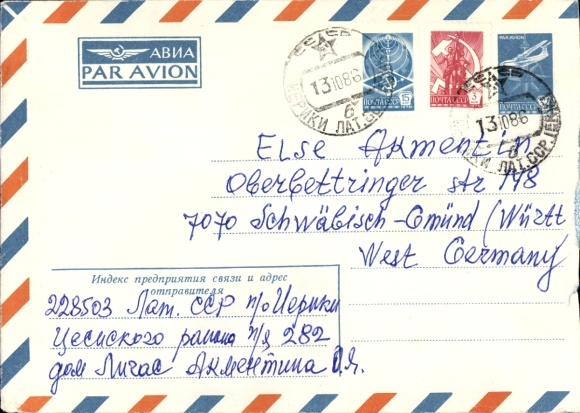 АВИА
PAR AVION
ИЕРИКИ ЛАТ.
131086
б
ПОЧТА СССР
ПОЧТА СССР
PAR AVION
ПОЧТА СССР
131086
б
ЛАТ. ССР
Else Akmentin
Oberbettringer str 148
7070 Schwäbisch-Gmünd (Württ
West Germany
Индекс предприятия связи и адрес
отправителя
228503 Лат. ССР п/о Иерики
Цесисского района п/я 282
дом Лигас Акментина О.Я.